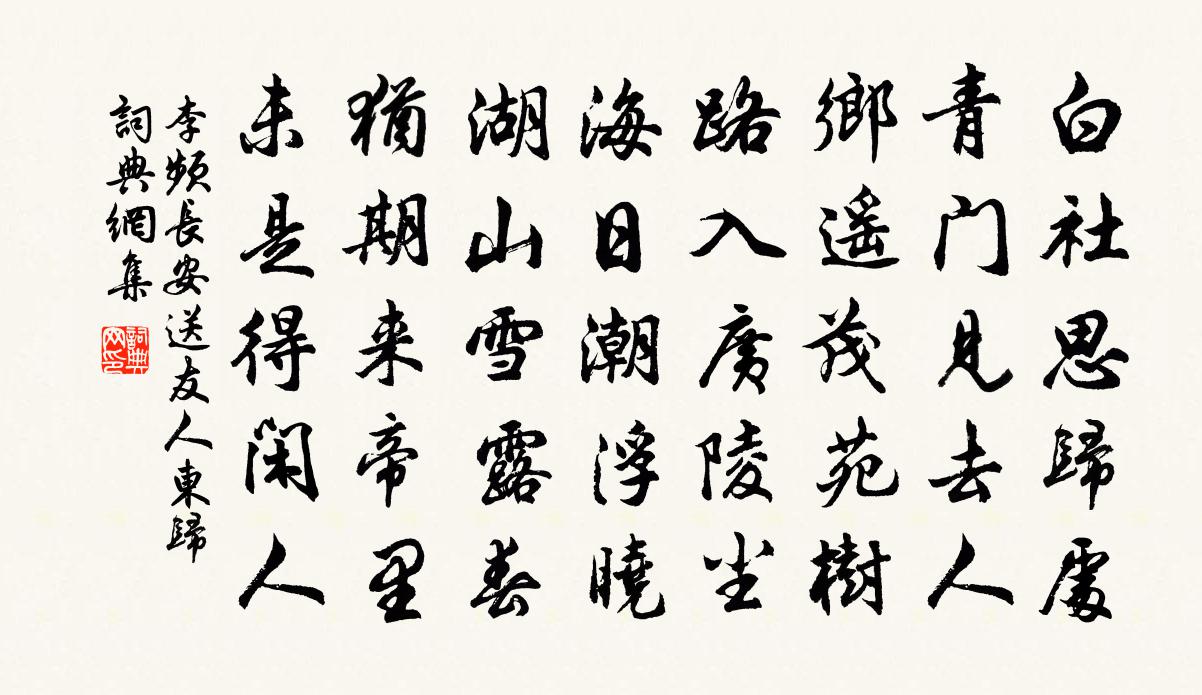 白社思歸處
青門見去人
鄉遥茂苑樹
路入廣陵尘
海日潮浮曉
湖山雪露春
猶期来帝里
未是得閑人
李頻長安送友人東歸
詞典網集
詞典网印